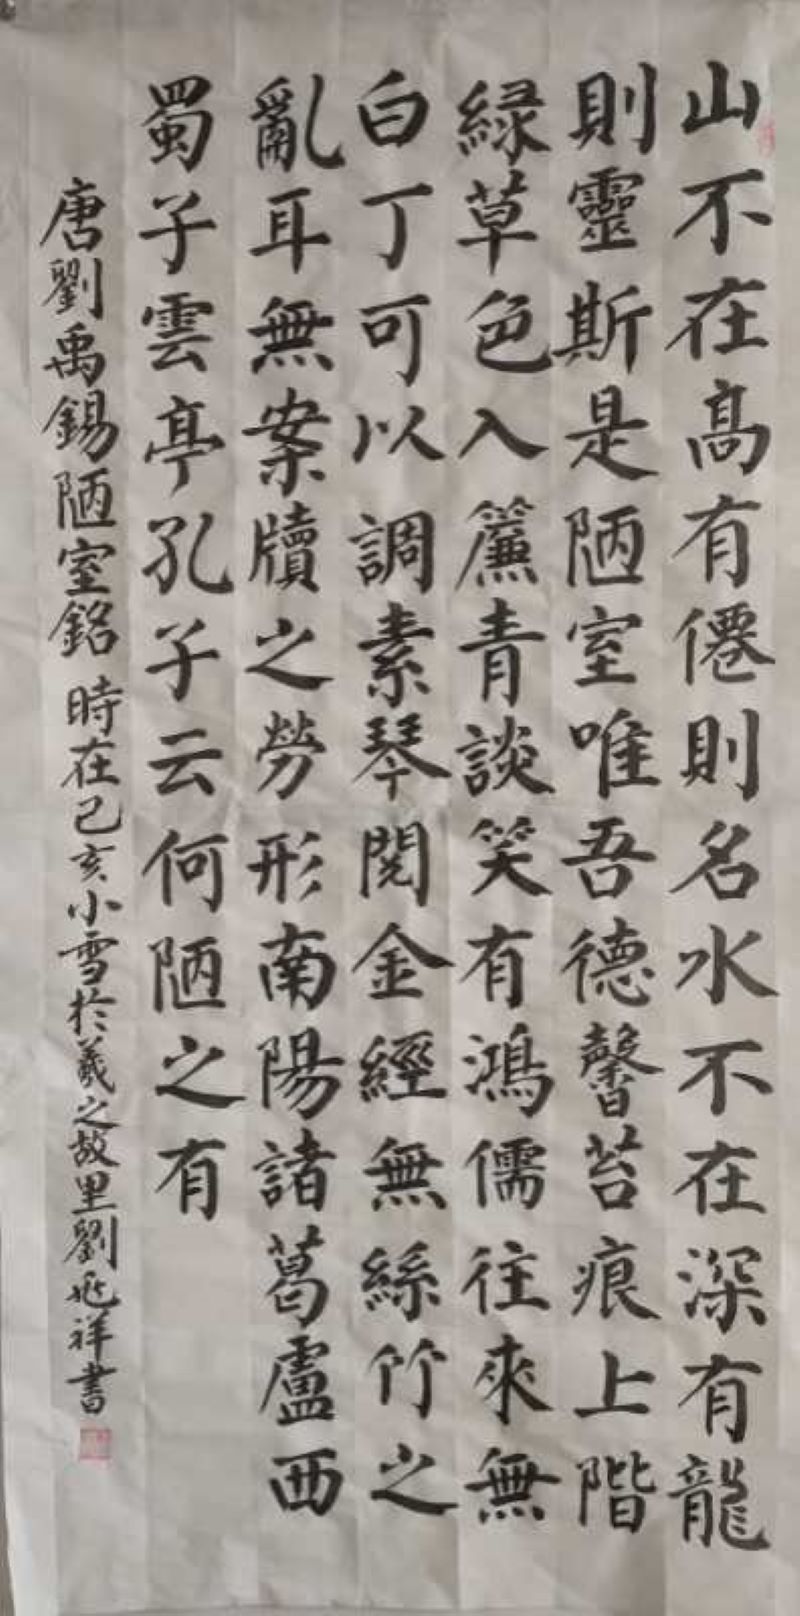 山不在高有僊則名水不在深有龍
則靈斯是陋室唯吾德馨苔痕上階
緑草色入簾青談笑有鴻儒往來無
白丁可以調素琴閱金經無絲竹之
亂耳無案牘之勞形南陽諸葛盧西
蜀子雲亭孔子云何陋之有
唐劉禹錫陋室銘 時在己亥小雪於羲之故里劉兆祥書